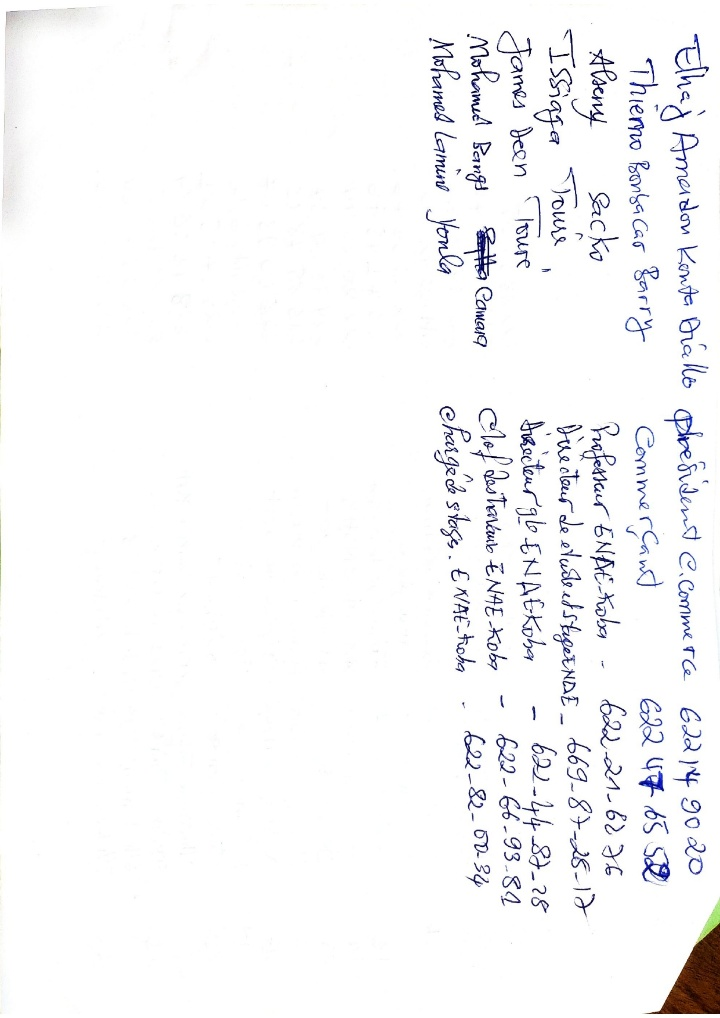 Elhaj Amadou Konta Diallo président C.Commerce 622 14 90 20
Thierno Boubacar Barry Commerçant 622 47 65 52
Alseny Sacko Professeur ENAE-Koba - 622-21-62 76
Issiaga Touré Directeur de etude et stage ENAE - 669-87-28-17
James Deen Touré Directeur gle ENAE Koba - 622-44-87-28
Mohamed Bangs Camara Chef des travaux ENAE-Koba - 622-66-93-81
Mohamed Lamine Yomba Chargé de stage. ENAE-Koba - 622-82-00-34